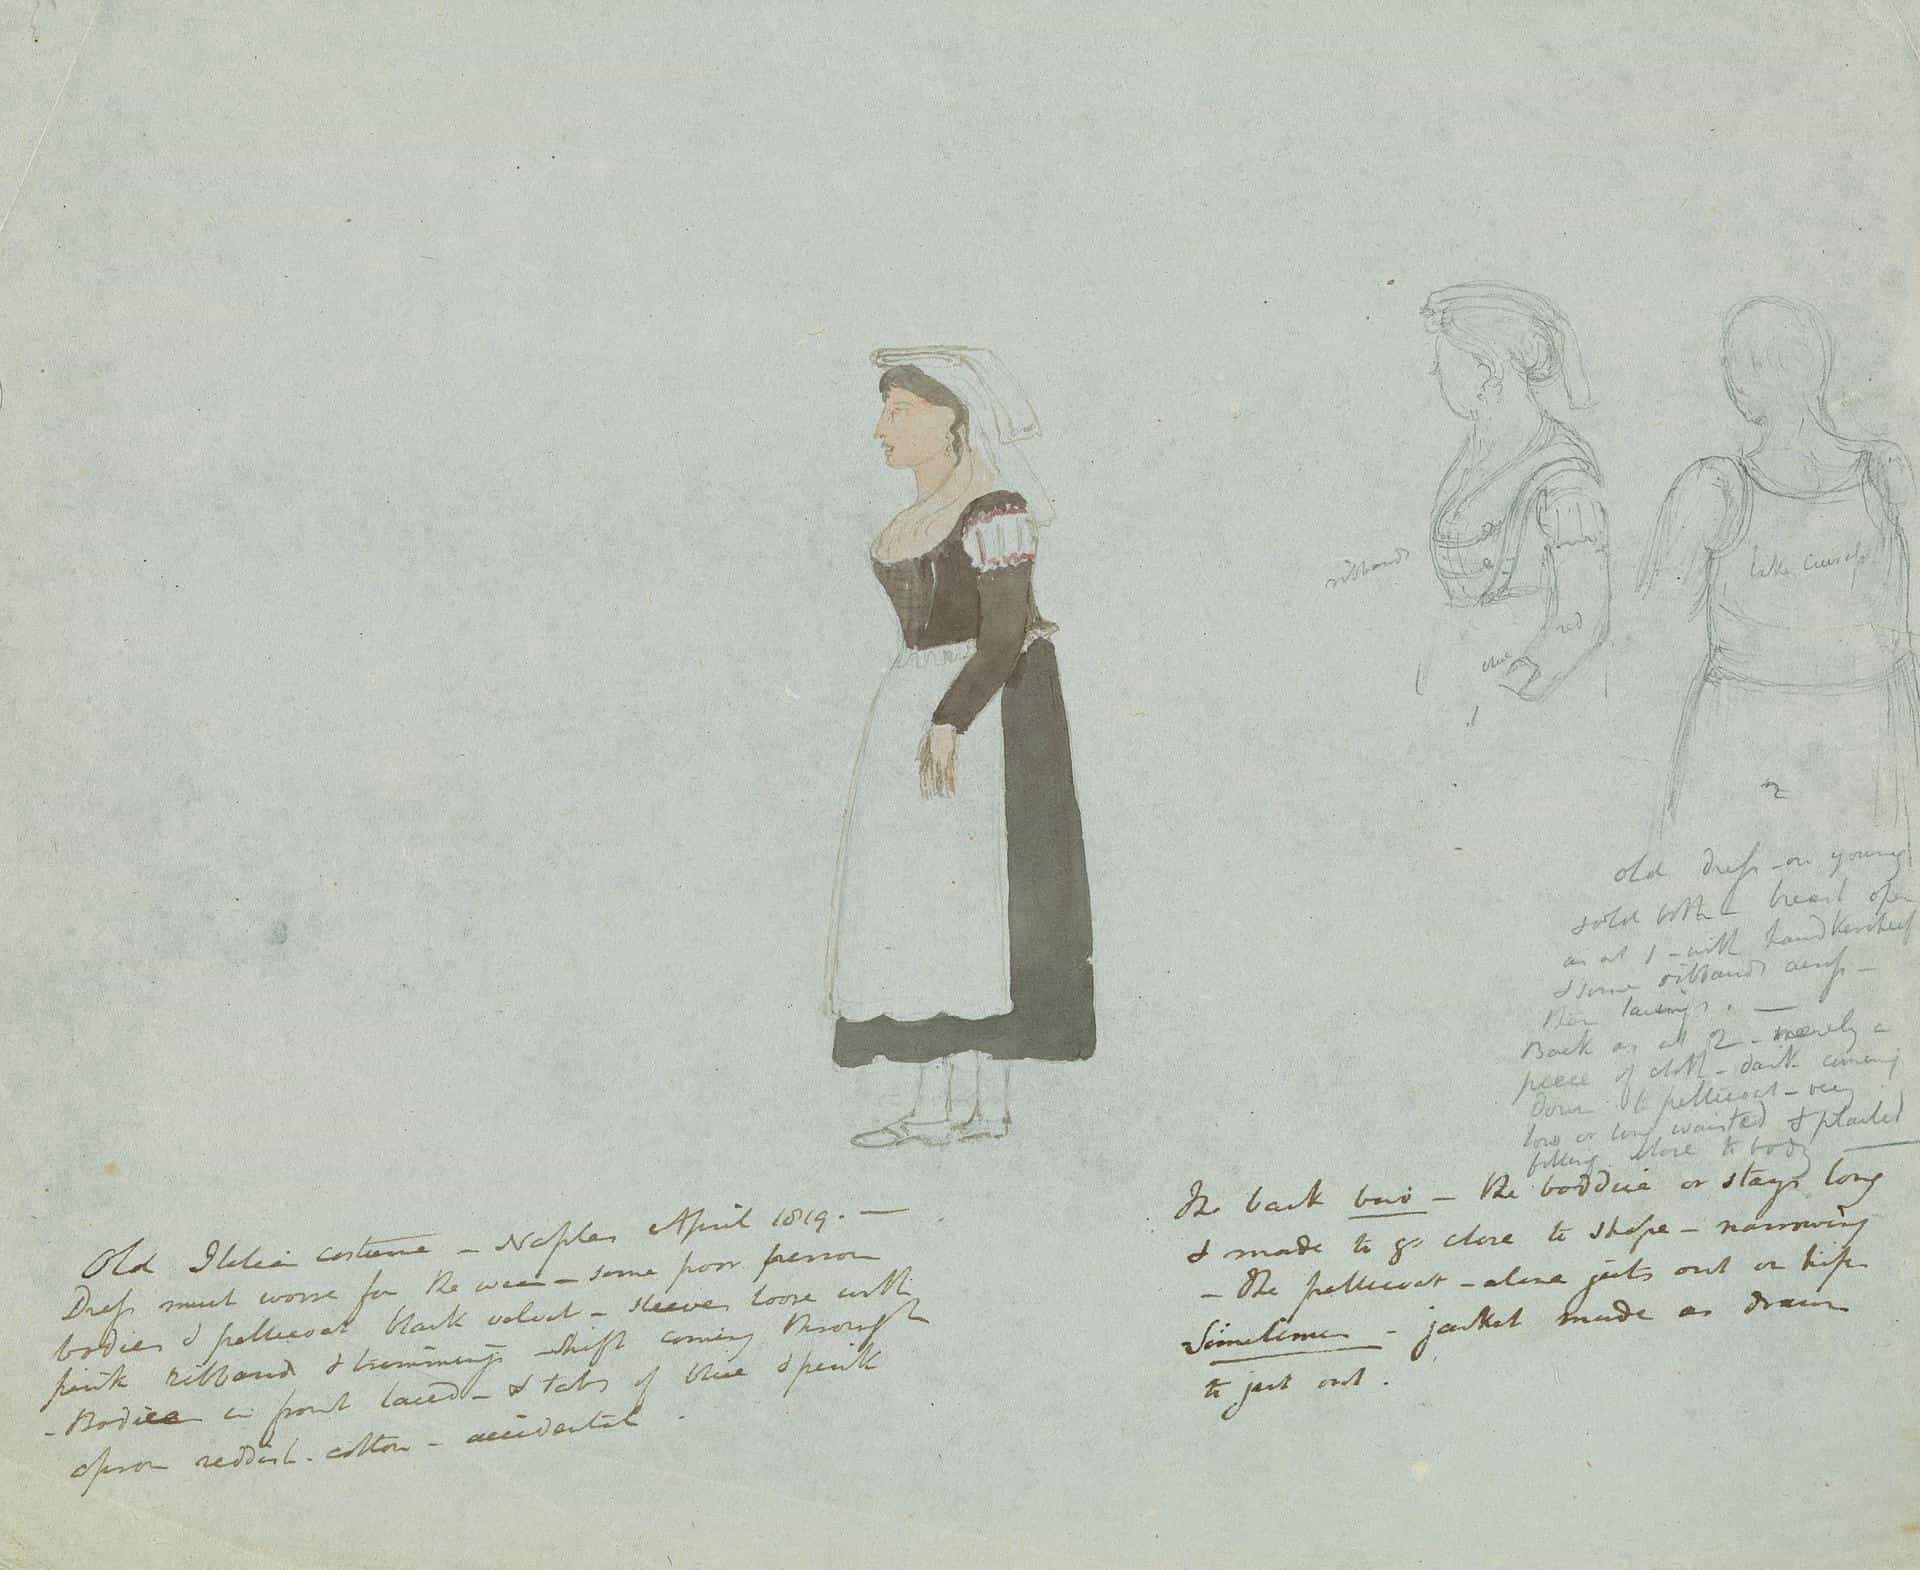 Old Italian costume – Naples April 1819. –
Dress much worse for the wear – some poor person
bodies & petticoat black velvet – sleeves loose with
pink ribband & trimmings shift coming through
– Bodice in front laced – & tabs of blue & pink
apron reddish cotton – accidental.
ribband
red
blue
1
like cuirass
2
old dress – on young
& old both – breast open
as at 1 – with handkerchief
& some ribbands across –
then lacings. –
Back as at 2 – merely a
piece of cloth – dark coming
down to petticoat – very
low or long waisted & plaited
fitting close to body
The back – the boddice or stays long
& made to go close to shape – narrowing
– the petticoat – alone juts out on hips
Sometimes – jacket made as drawn
to jut out.